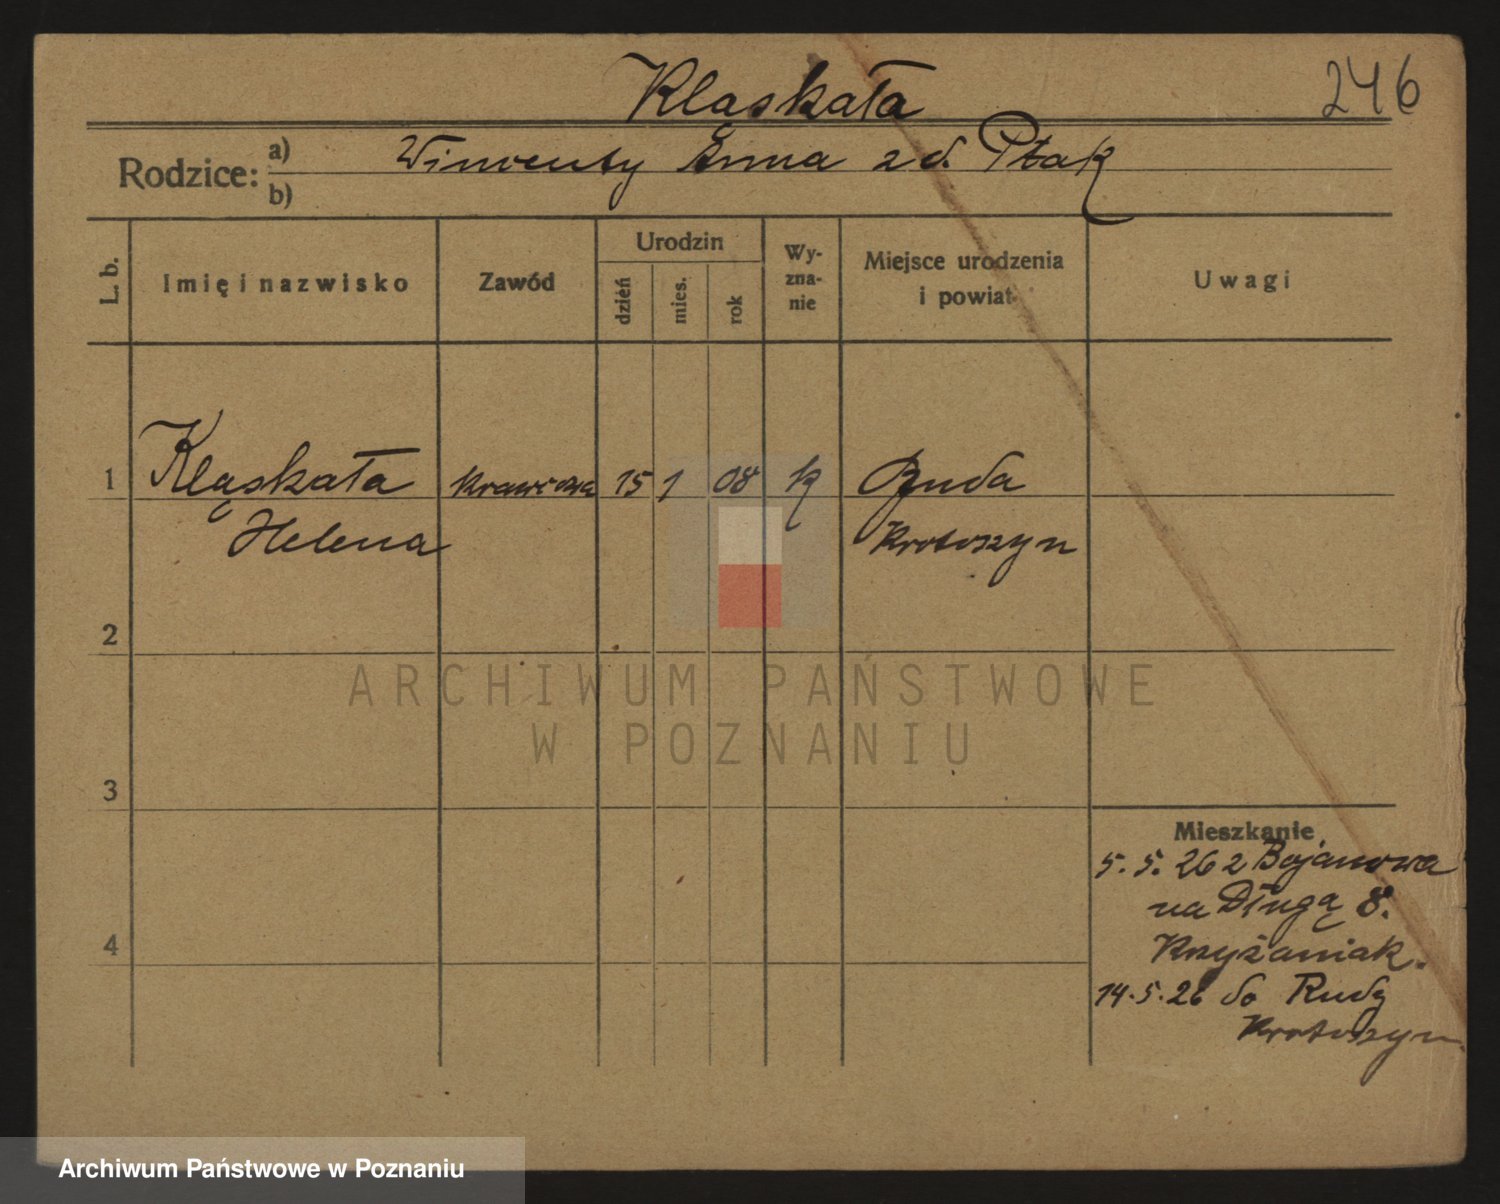 Kląskała
246
Rodzice: a) Wincenty Anna z d. Ptak
b)
L. b.
Imię i nazwisko
Zawód
Urodzin
dzień
mies.
rok
Wy-
zna-
nie
Miejsce urodzenia
i powiat
Uwagi
1 Kląskała krawcowa 15 1 08 k Ruda
Helena Krotoszyn
2
3
4
Mieszkanie
5.5.26 z Bojanowa
na Długą 8.
Krzyżaniak.
14.5.26 do Rudy
Krotoszyn.
ARCHIWUM PAŃSTWOWE
W POZNANIU
Archiwum Państwowe w Poznaniu